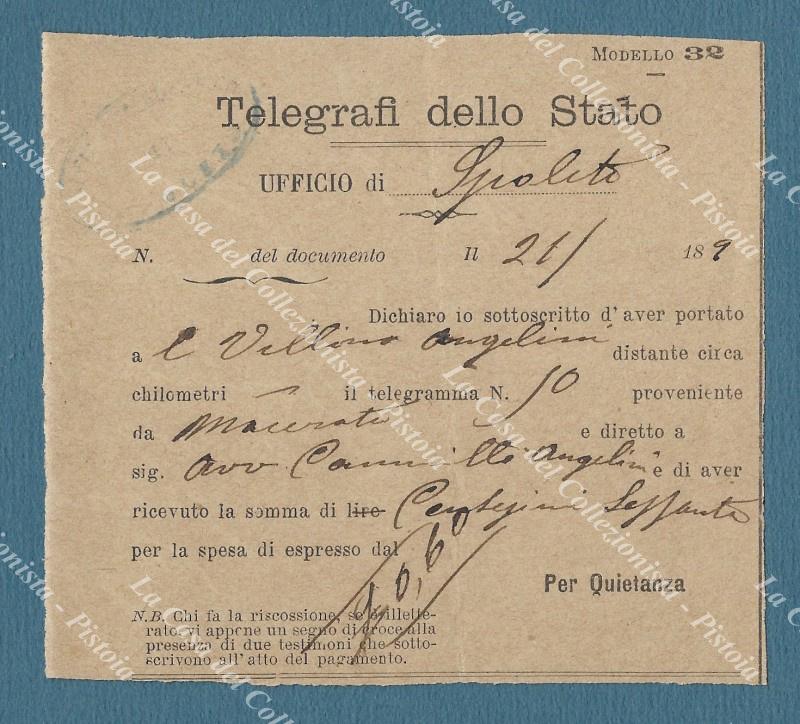 MODELLO 32
Telegrafi dello Stato
UFFICIO di Spoleto
N. del documento Il 21/ 189
Dichiaro io sottoscritto d'aver portato
a Villino Angelini distante circa
chilometri – il telegramma N. 10 proveniente
da Macerata e diretto a
sig. Avv Cammillo Angelini e di aver
ricevuto la somma di lire Centesimi Sessanta
per la spesa di espresso dal 0,60
Per Quietanza
N.B. Chi fa la riscossione, se è illette-
rato, vi appone un segno di croce alla
presenza di due testimoni che sotto-
scrivono all'atto del pagamento.
La Casa del Collezionista - Pistoia